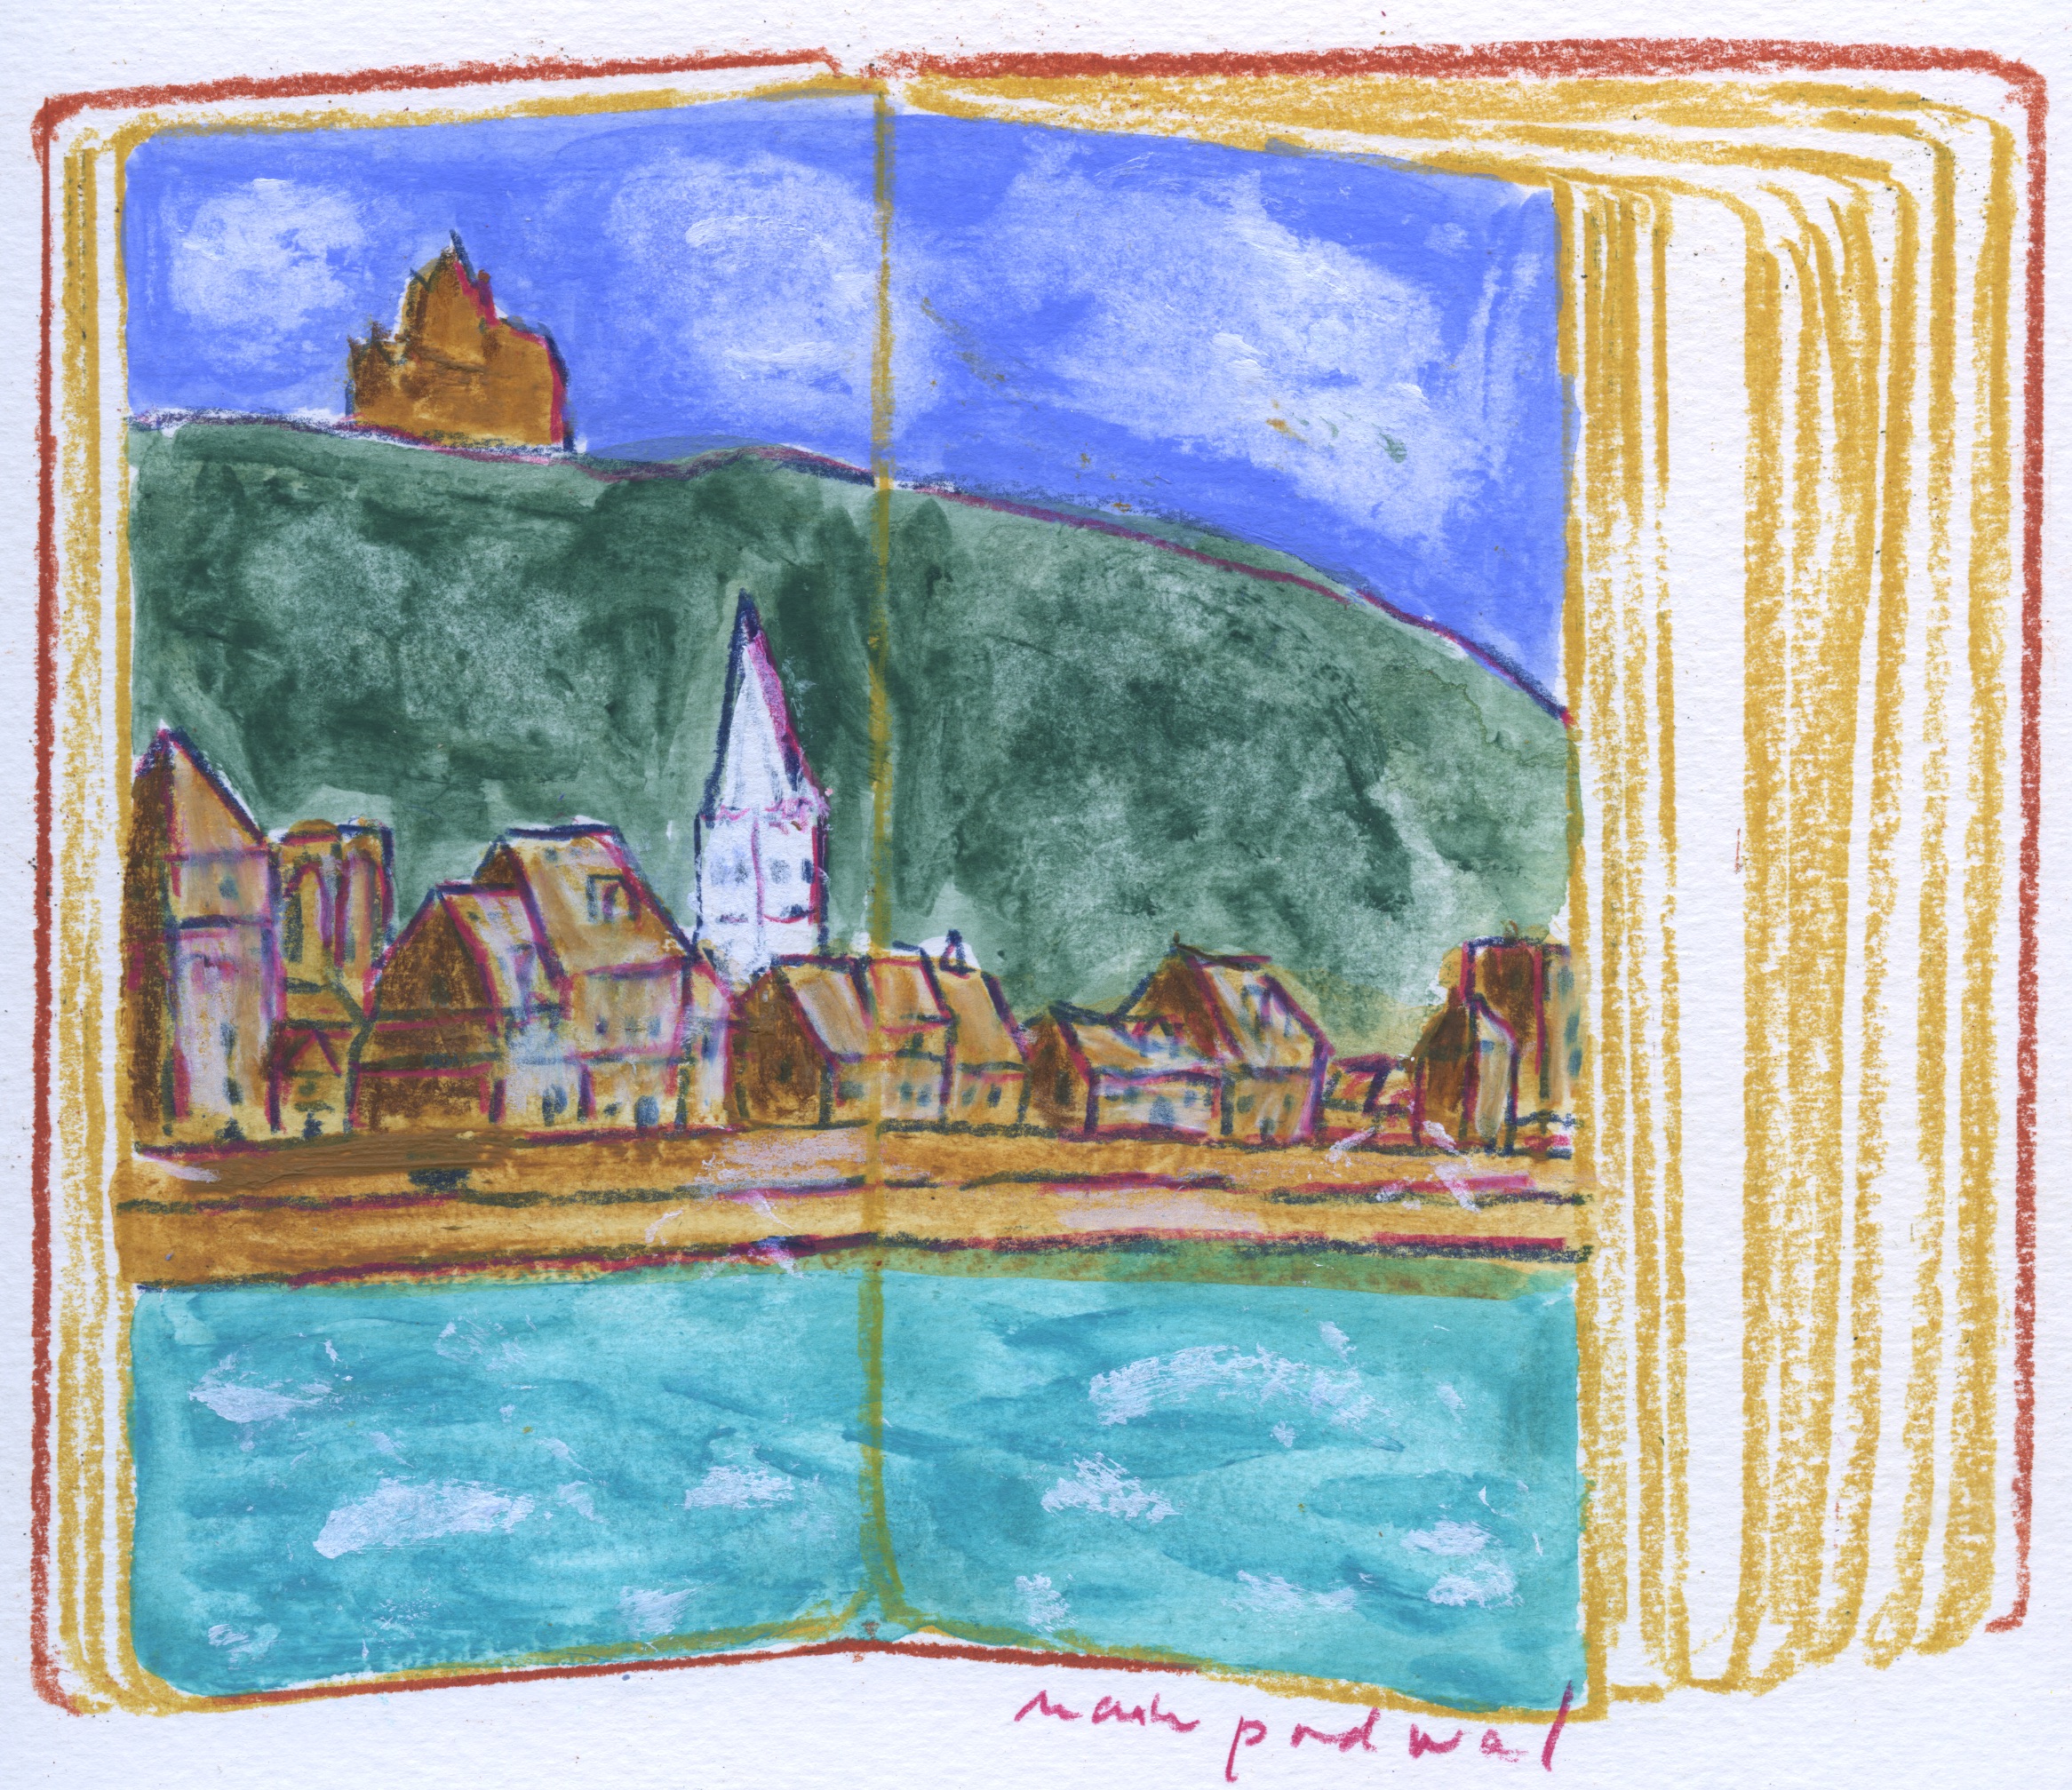 mark podwal